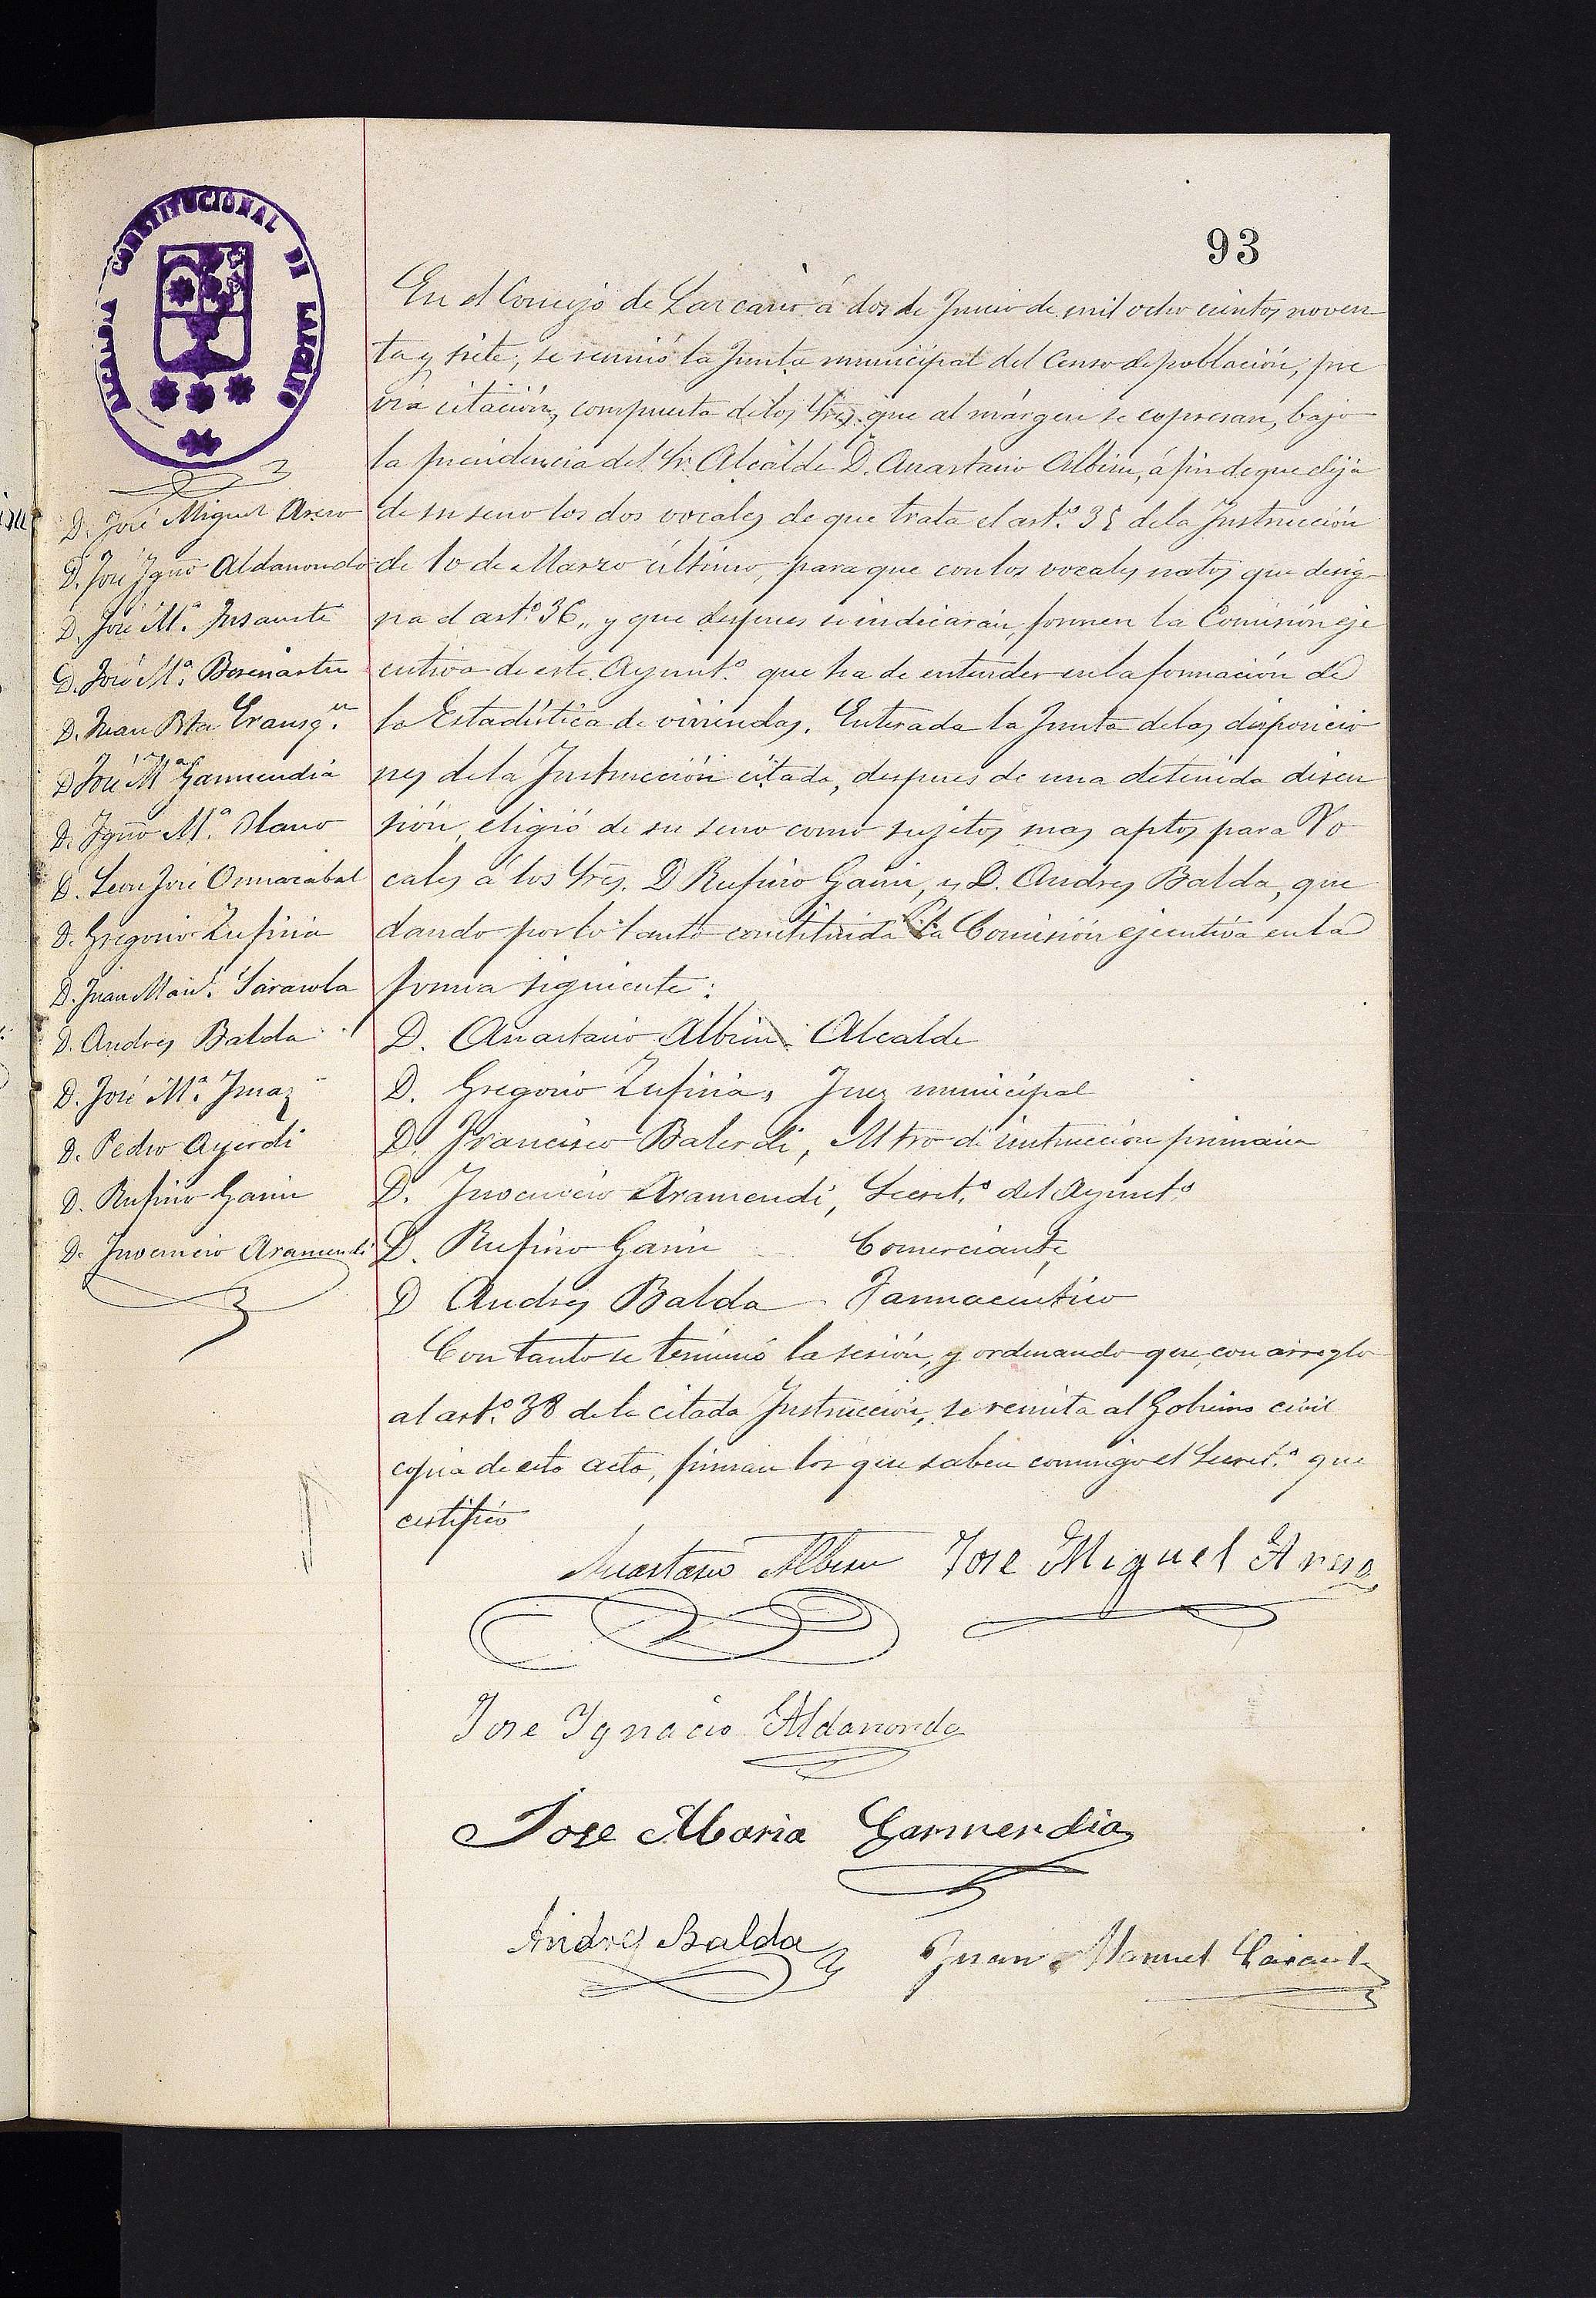 93
ALCALDIA CONSTITUCIONAL DE LAZCANO
En el Concejo de Lazcano á dos de Junio de mil ocho cientos noven
ta y siete, se reunió la Junta municipal del Censo de población, pre
via citación, compuesta de los Sres. que al márgen se espresan, bajo
la presidencia del Sr. Alcalde D. Anastasio Albisu, á fin de que elija
de su seno los dos vocales de que trata el art.º 35 de la Instrucción
de 10 de Marzo último, para que con los vocales natos que desig
na el art.º 36, y que despues se indicarán, formen la Comisión eje
cutiva de este Ayunt.º que ha de entender en la formación de
la Estadística de viviendas. Enterada la Junta de las disposicio
nes de la Instrucción citada, despues de una detenida discu
sión, eligió de su seno como sujetos mas aptos para Vo
cales á los Sres. D Rufino Garin, y D. Andres Balda, que
dando por lo tanto constituida la Comisión ejecutiva en la
forma siguiente:
D. Anastasio Albisu Alcalde
D. Gregorio Zufiria, Juez municipal
D. Francisco Balerdi, Mtro de instrucción primaria
D. Inocencio Aramendi, Secret.º del Ayunt.º
D. Rufino Garin Comerciante
D Andres Balda Farmacéutico
Con tanto se terminó la sesión, y ordenando que con arreglo
al art.º 38 de la citada Instrucción, se remita al Gobierno civil
copia de esta acta, firman los que saben conmigo el Secret.º que
certifico
D. José Miguel Areso
D. José Ygnº Aldanondo
D. José M.ª Insausti
D. José M.ª
D. Juan Bta
D José Mª Garmendia
D. Ygnº M.ª Olano
D. Leon José Ormazabal
D. Gregorio Zufiria
D. Juan Man.l Sarasola
D. Andres Balda
D. José M.ª Imaz
D. Pedro Ayerdi
D. Rufino Garin
D. Inocencio Aramendi
Anastasio Albisu Jose Miguel Areso
Jose Ygnacio Aldanondo
Jose Maria Garmendia
Andres Balda Juan Manuel Sarasola